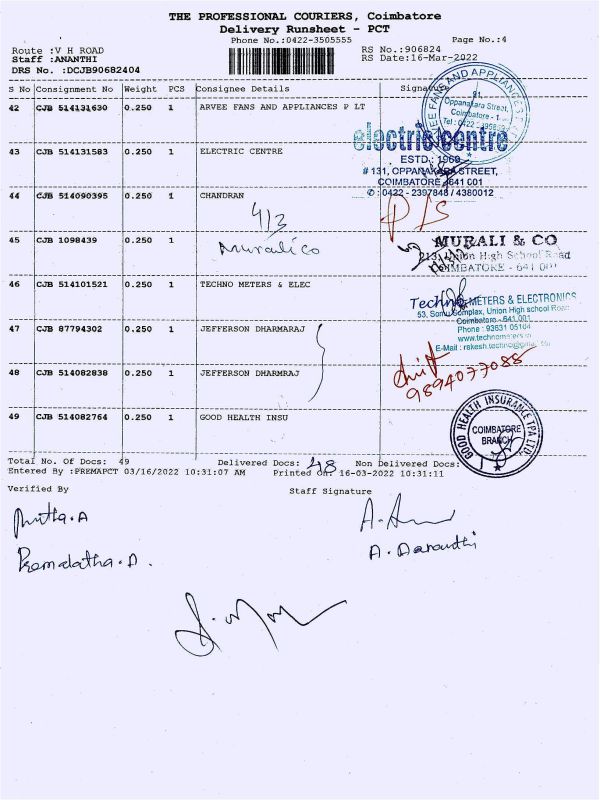 THE PROFESSIONAL COURIERS, Coimbatore
Delivery Runsheet - PCT
Phone No.:0422-3505555
Page No.:4
Route :V H ROAD
RS No.:906824
Staff :ANANTHI
RS Date:16-Mar-2022
DRS No. :DCJB90682404
S No Consignment No Weight PCS Consignee Details Signature
42 CJB 514131630 0.250 1 ARVEE FANS AND APPLIANCES P LT
EE FANS AND APPLIANCES P
Oppanakara Street,
Coimbatore - 1
Tel : 0422
electric centre
43 CJB 514131583 0.250 1 ELECTRIC CENTRE
ESTD.: 1960
# 131, OPPANAKARA STREET,
COIMBATORE - 641 001
✆ : 0422 - 2397848 / 4380012
44 CJB 514090395 0.250 1 CHANDRAN
4/3
P/S
45 CJB 1098439 0.250 1 Murali co
MURALI & CO
213, Union High School Road
COIMBATORE - 641 001
46 CJB 514101521 0.250 1 TECHNO METERS & ELEC
Techno METERS & ELECTRONICS
53, Somu Complex, Union High school Road
Coimbatore - 641 001
Phone : 93631 05104
www.technometers.in
47 CJB 87794302 0.250 1 JEFFERSON DHARMARAJ
E-Mail : rakesh.techno@gmail.com
48 CJB 514082838 0.250 1 JEFFERSON DHARMRAJ
9894077088
49 CJB 514082764 0.250 1 GOOD HEALTH INSU
GOOD HEALTH INSURANCE TPA LTD.
COIMBATORE
BRANCH
Total No. Of Docs: 49 Delivered Docs: 48 Non Delivered Docs:
Entered By :PREMAPCT 03/16/2022 10:31:07 AM Printed On: 16-03-2022 10:31:11
Verified By
Staff Signature
Premalatha.A.
A. Aananthi